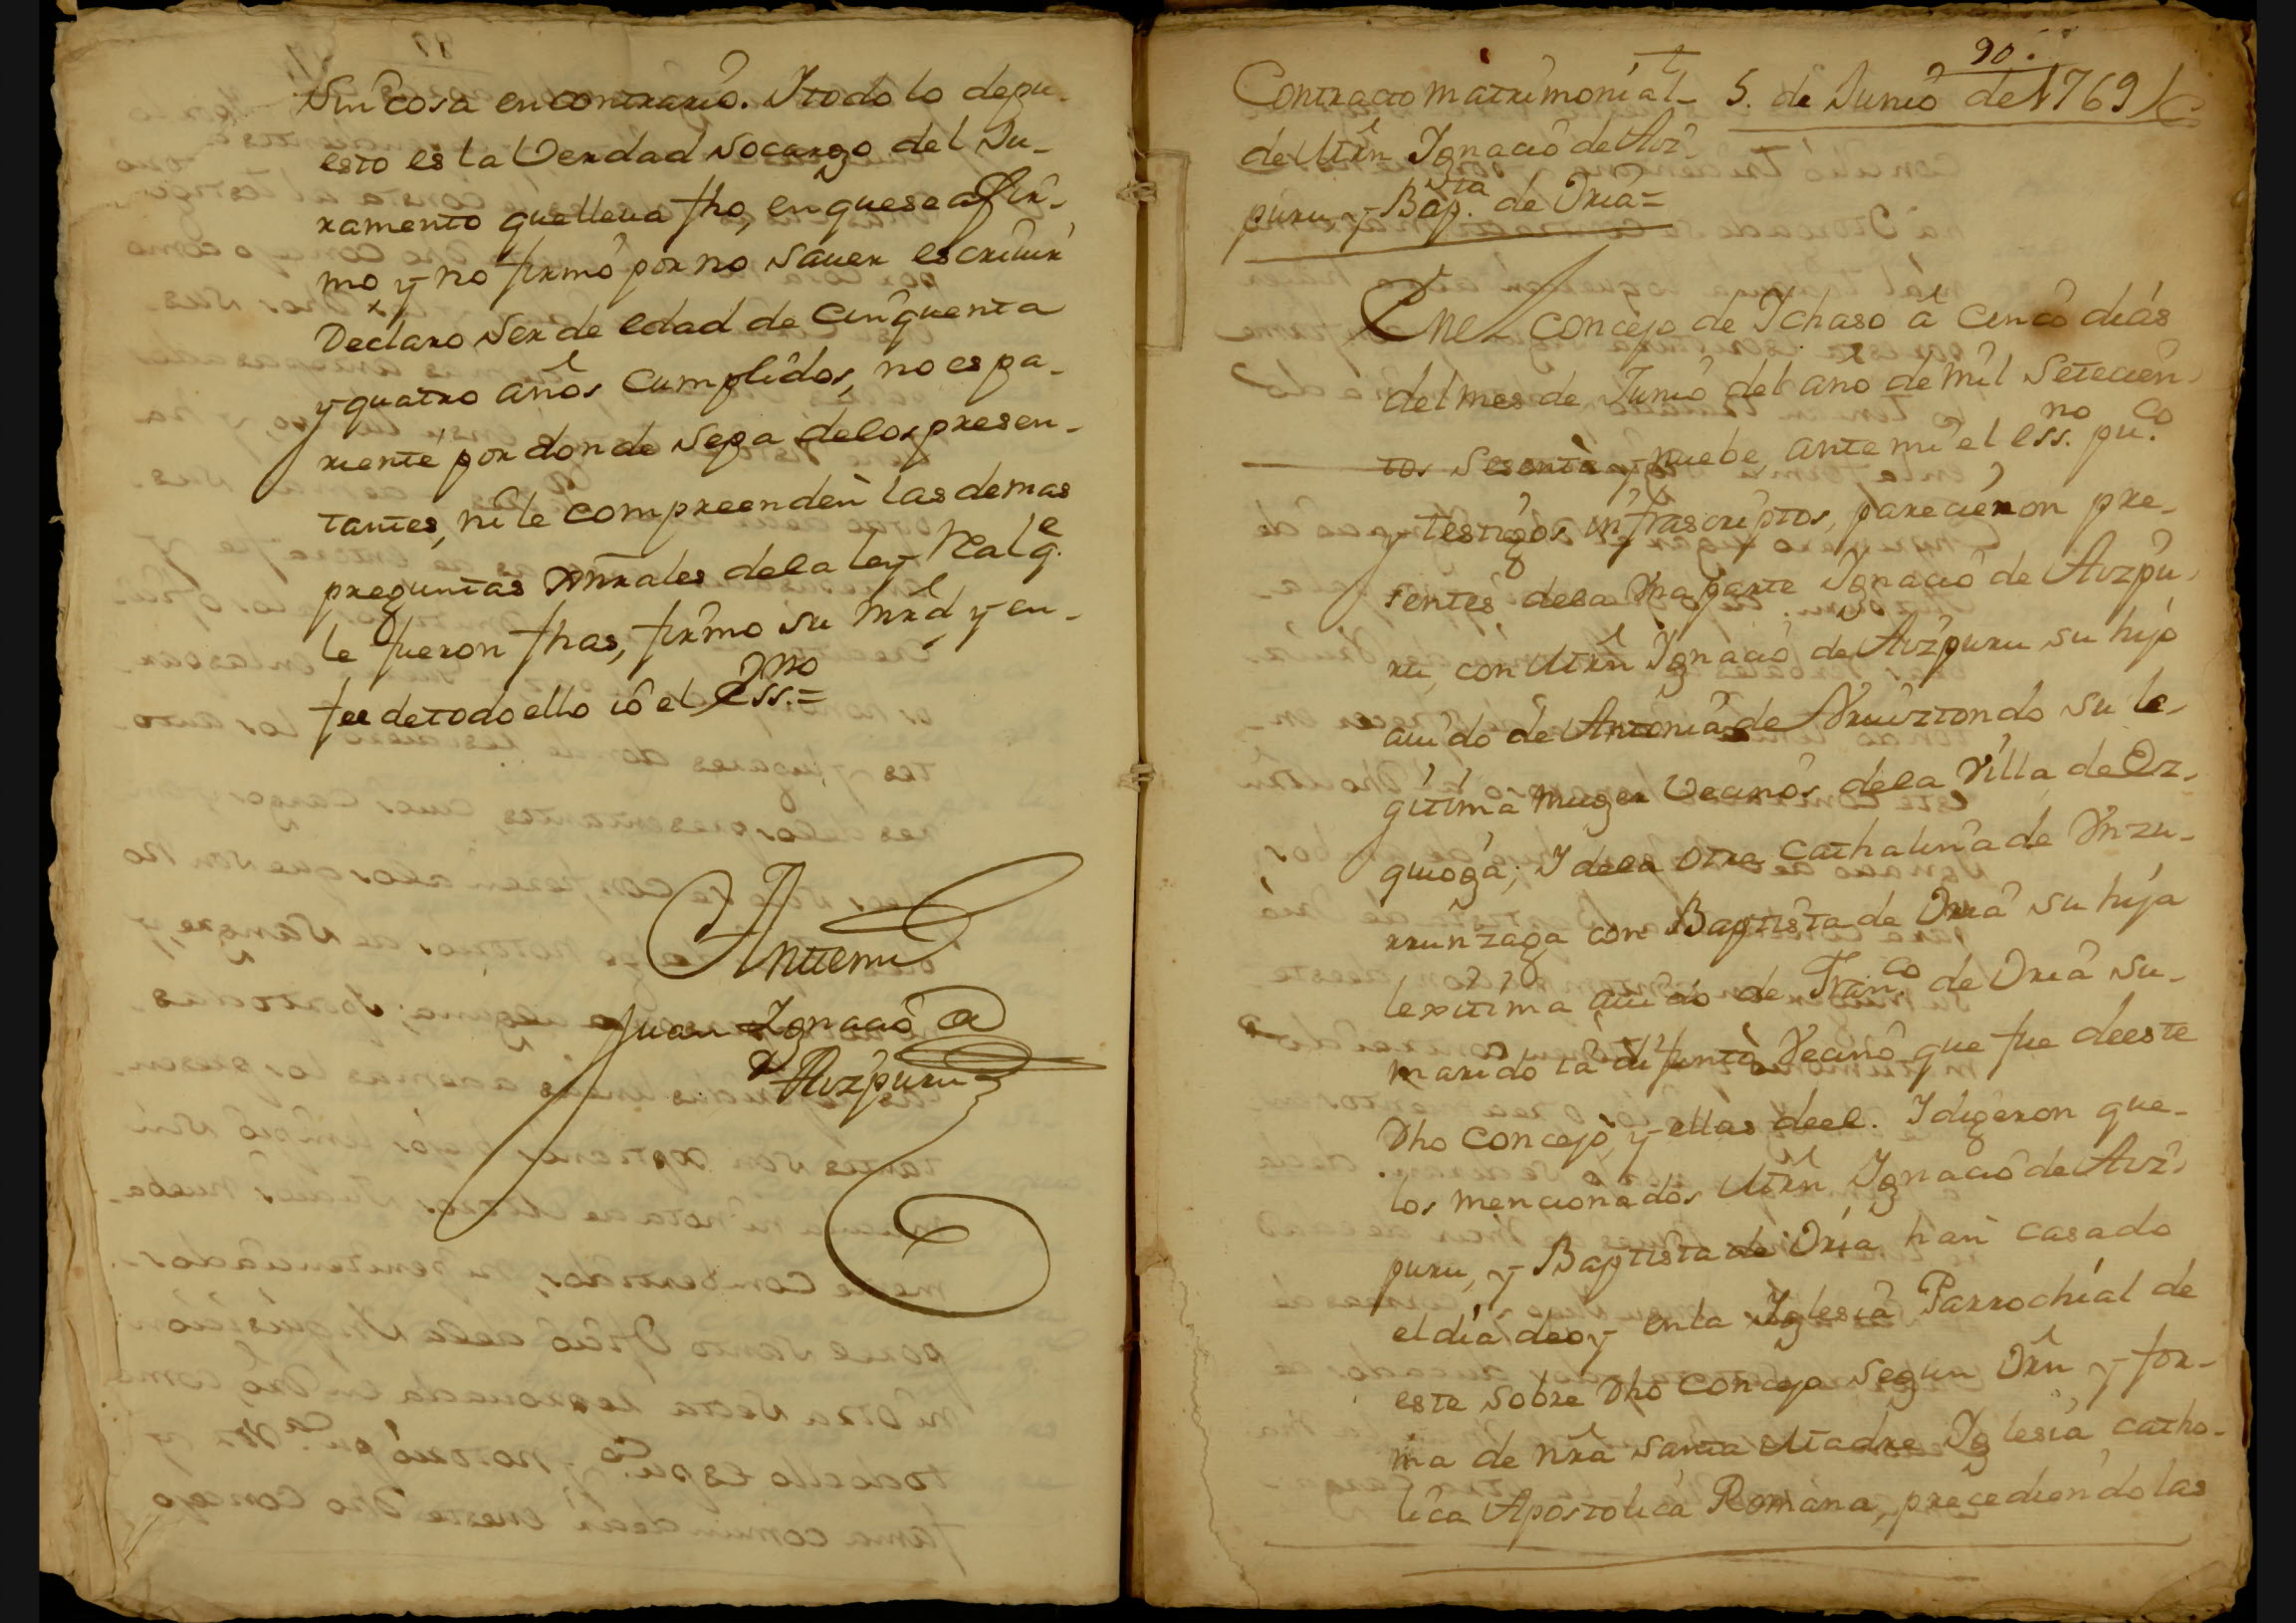 Sin cosa en contrario. Y todo lo depu-
esto es la Verdad socargo del Ju-
ramento que lleva fho, en que se afir-
mo y no firmó por no saver escrivir
Declaro ser de edad de cinquenta
y quatro años cumplidos, no es pa-
riente por donde sepa de los presen-
tantes, ni le compreenden las demas
preguntas gnrales de la ley Real q.e
le fueron fhas, firmo su mrd, y en
fee de todo ello io el Ess.no =
Antemi
Juan Ignacio
de Aizpuru
90.
Contracto matrimonial 5. de Junio de 1769
de Mrn Ignacio de Aiz-
puru y Bap.ta de Oria =
En el concejo de Ichaso á cinco dias
del mes de Junio del año de mil setecien-
tos sesenta y nuebe, ante mi el ess.no pu.co
y testigos infrascriptos, parecieron pre-
sentes de la Vna parte Ignacio de Aizpu-
ru, con Mrn Ignacio de Aizpuru su hijo
auido de Antonia de Vruiztondo su le-
gitima muger Vecinos de la Villa de Ez-
quioga; Y de la otra Cathalina de Ynzu-
rrunzaga con Baptista de Oria su hija
lexitima auida de Fran.co de Oria su
marido ia difunto Vecino que fue de este
dho Concejo, y ellas de el. Y digeron que
los mencionados Mrn Ignacio de Aiz-
puru, y Baptista de Oria han casado
el dia de oy en la Iglesia Parrochial de
este sobre dho Concejo segun Orn y for-
ma de nra santa Madre Iglesia catho-
lica Apostolica Romana, precediendo las